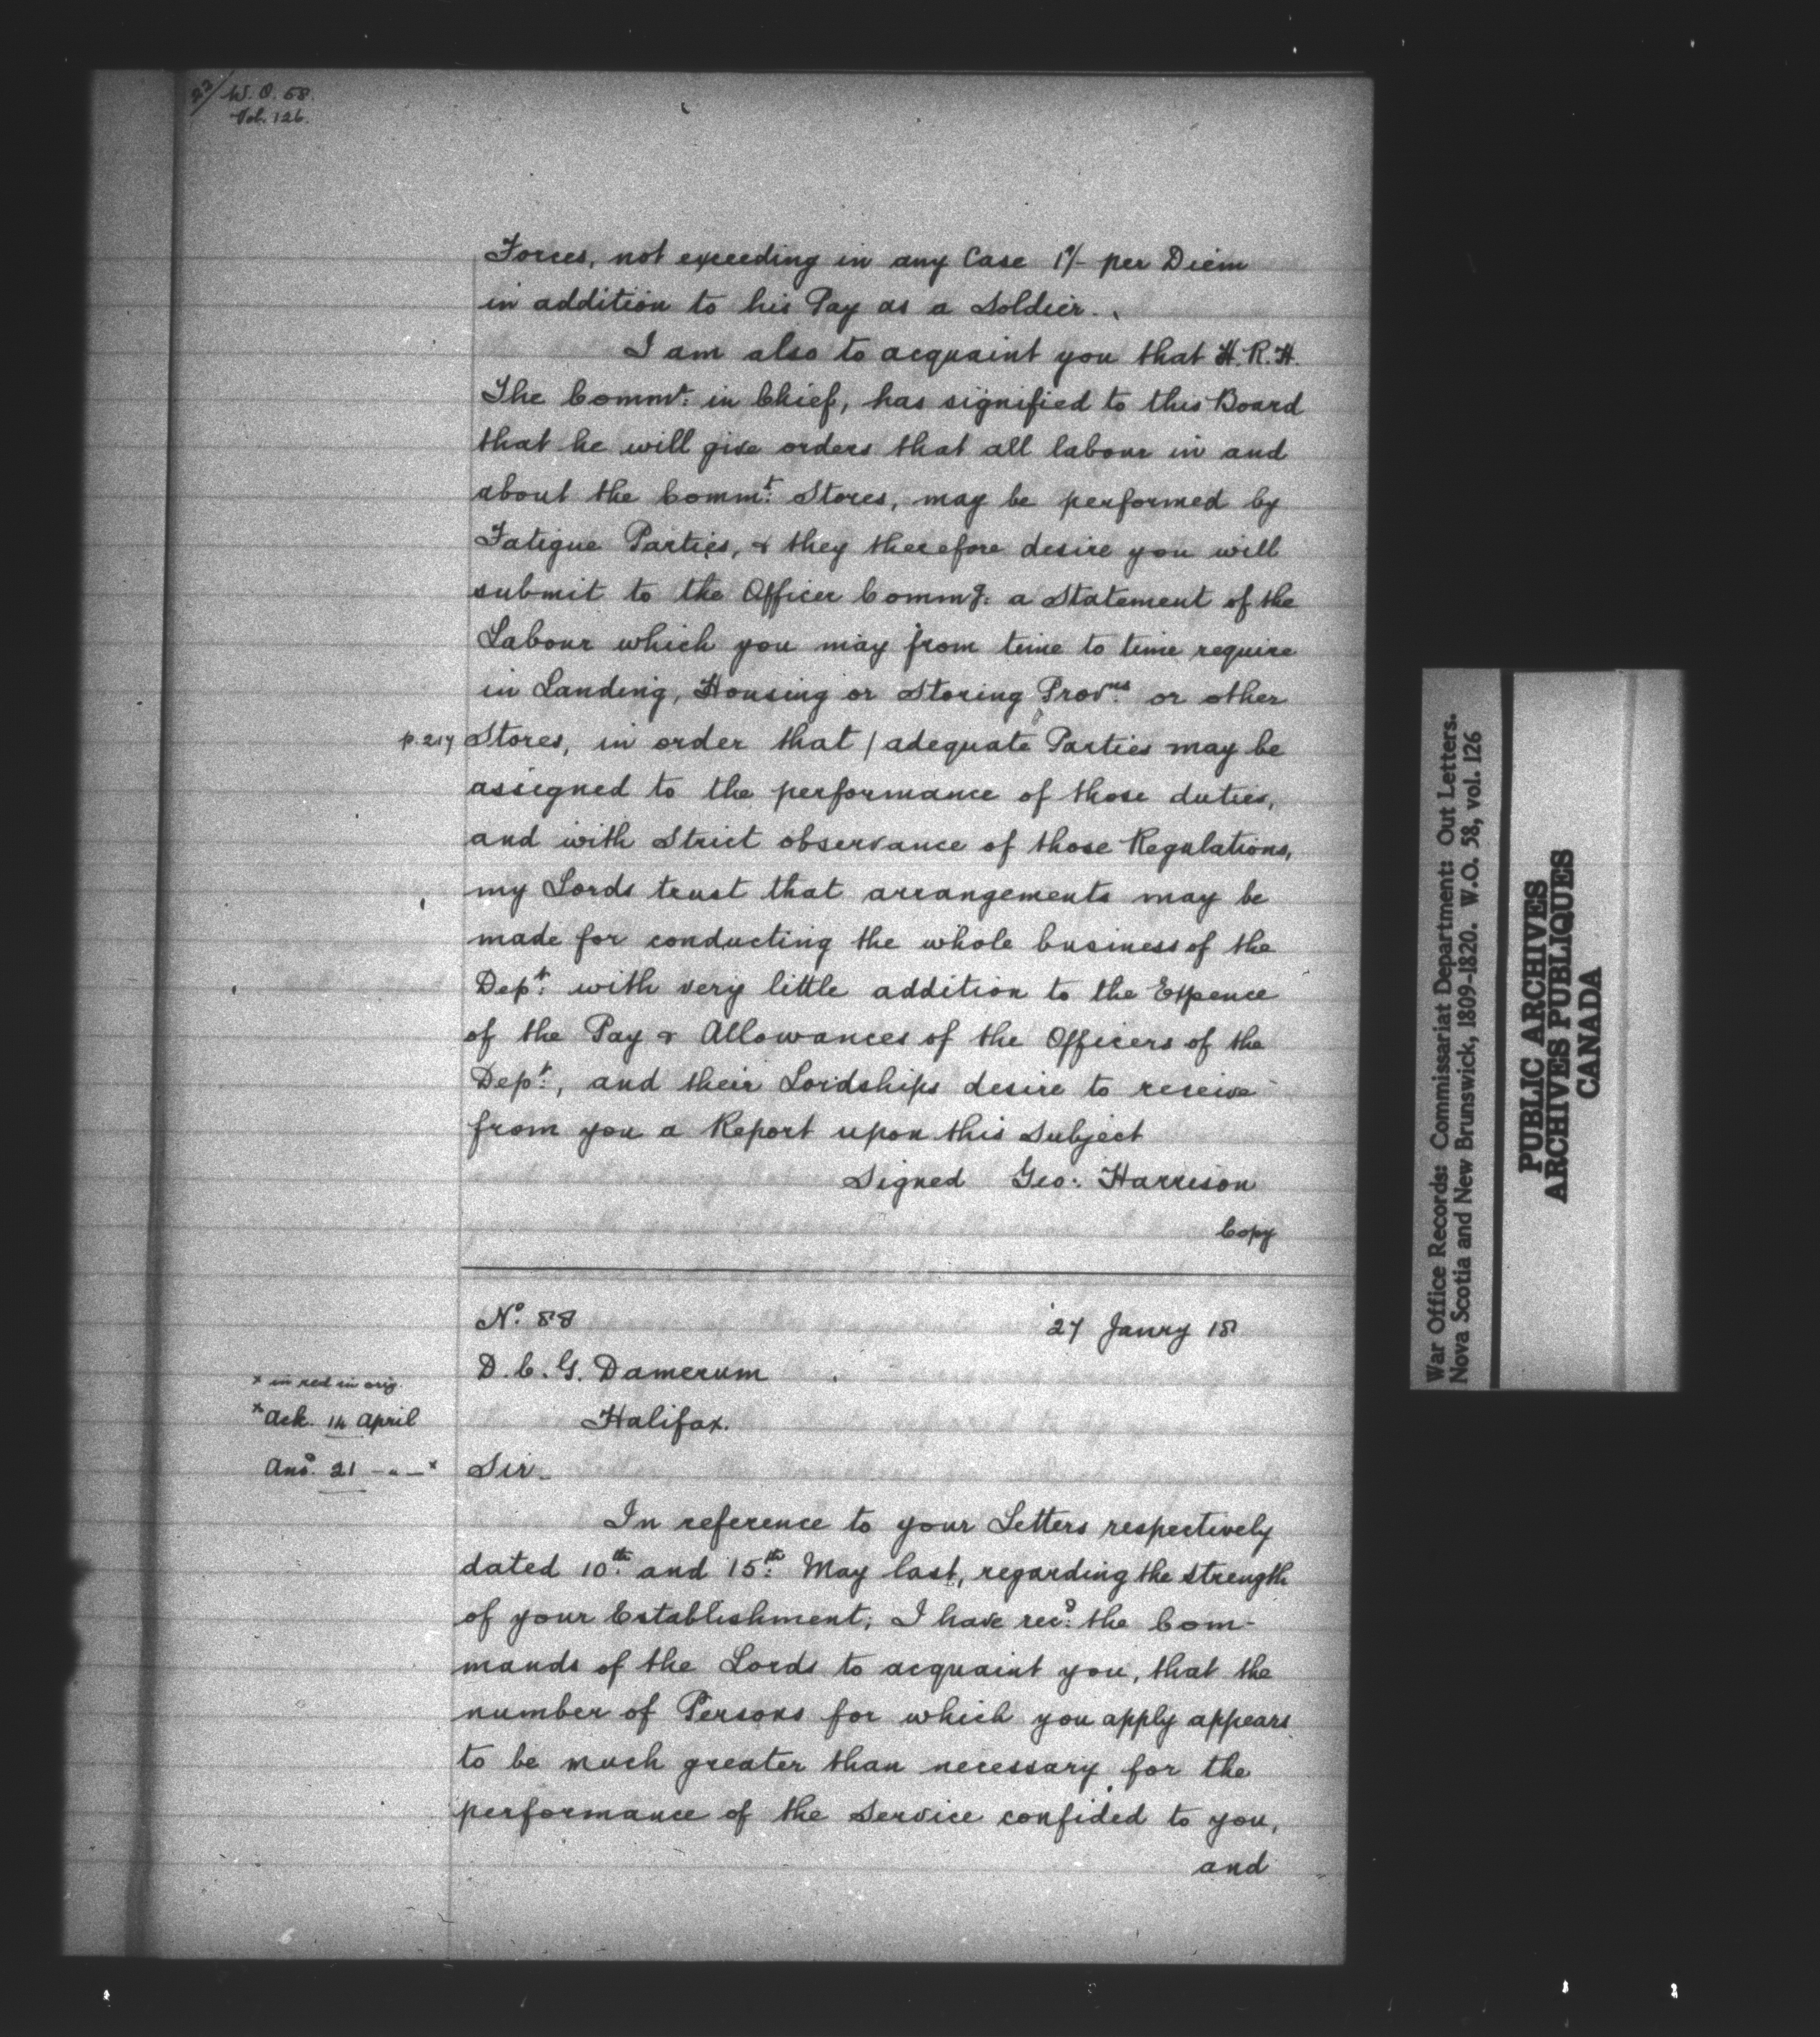 23/ W. O. 58.
Vol. 126.
Forces, not exceeding in any Case 1/- per Diem
in addition to his Pay as a Soldier.
I am also to acquaint you that H. R. H.
The Commr: in Chief, has signified to this Board
that he will give orders that all labour in and
about the Commt: Stores, may be performed by
Fatigue Parties, & they therefore desire you will
submit to the Officer Commg: a Statement of the
Labour which you may from time to time require
in Landing, Housing or Storing Provns: or other
p. 217 Stores, in order that / adequate Parties may be
assigned to the performance of those duties,
and with Strict observance of those Regulations,
my Lords trust that arrangements may be
made for conducting the whole business of the
Dept: with very little addition to the Expence
of the Pay & Allowances of the Officers of the
Dept:, and their Lordships desire to receive
from you a Report upon this Subject
Signed Geo: Harrison
Copy
No. 88 27 Janry 181
D. C. G. Damerum
x in red in orig.
Halifax.
x Ack. 14 April
Sir.
Ansd. 21 - " - x
In reference to your Letters respectively
dated 10th: and 15th: May last, regarding the strength
of your Establishment; I have recd: the Com-
mands of the Lords to acquaint you, that the
number of Persons for which you apply appears
to be much greater than necessary for the
performance of the Service confided to you,
and
War Office Records: Commissariat Department: Out Letters.
Nova Scotia and New Brunswick, 1809-1820. W.O. 58, vol. 126
PUBLIC ARCHIVES
ARCHIVES PUBLIQUES
CANADA